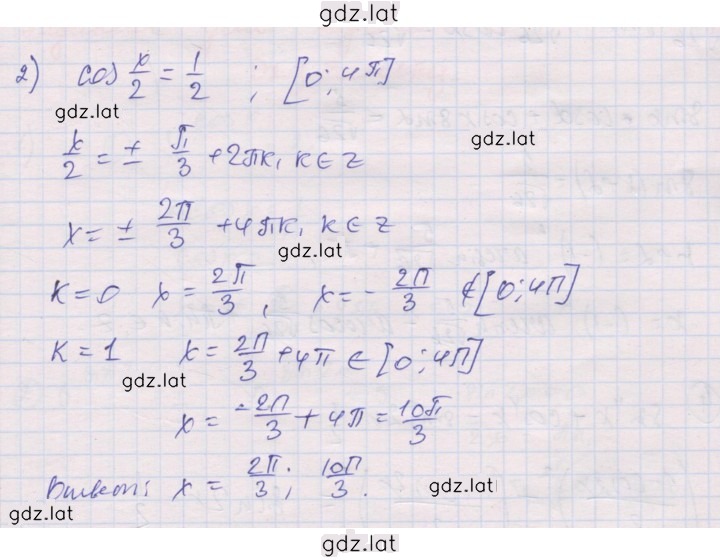 gdz.lat
2) cos x/2 = 1/2 ; [0; 4π]
gdz.lat
gdz.lat
x/2 = ± π/3 + 2πk, k ∈ z
x = ± 2π/3 + 4πk, k ∈ z
gdz.lat
k = 0 x = 2π/3, x = - 2π/3 ∉ [0; 4π]
k = 1 x = 2π/3 + 4π ∈ [0; 4π]
gdz.lat
x = -2π/3 + 4π = 10π/3
x = 2π/3; 10π/3.
gdz.lat
gdz.lat
gdz.lat